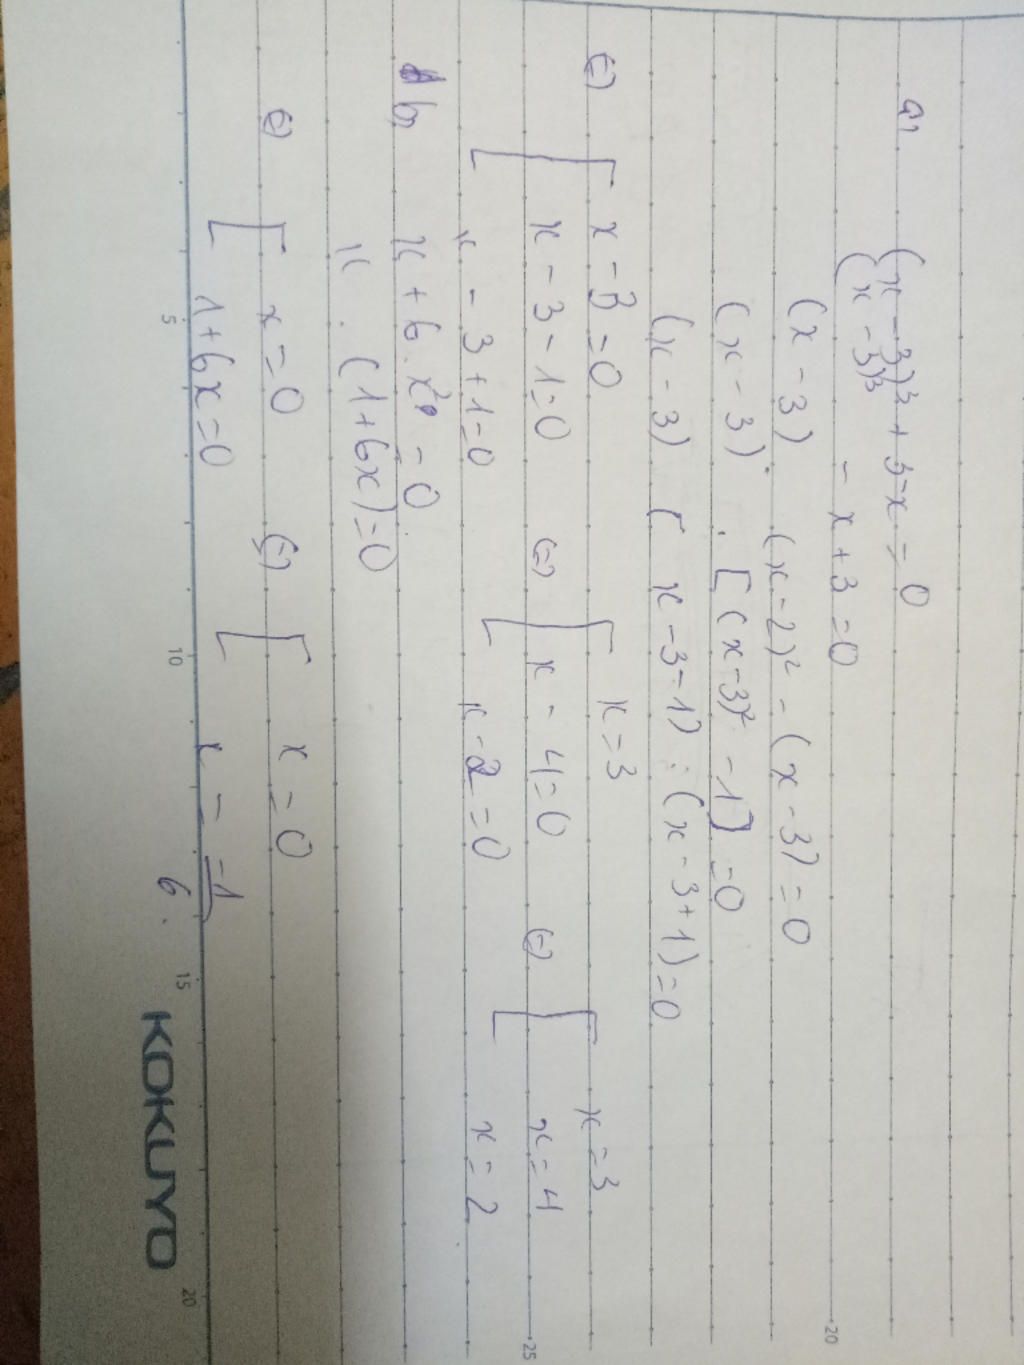 a,
(x - 3)³ + 3 - x = 0
(x - 3)³ - x + 3 = 0
(x - 3) . (x - 2)² - (x - 3) = 0
(x - 3) . [(x - 3)² - 1] = 0
(x - 3) ( x - 3 - 1) . (x - 3 + 1) = 0
(=) [ x - 3 = 0 x = 3 x = 3
x - 3 - 1 = 0 (=) [ x - 4 = 0 (=) [ x = 4
x - 3 + 1 = 0 x - 2 = 0 x = 2
b, x + 6 . x² = 0
x . (1 + 6x) = 0
(=) [ x = 0 (=) [ x = 0
1 + 6x = 0 x = -1/6 .
5 10 15 20
20
25
KOKUYO